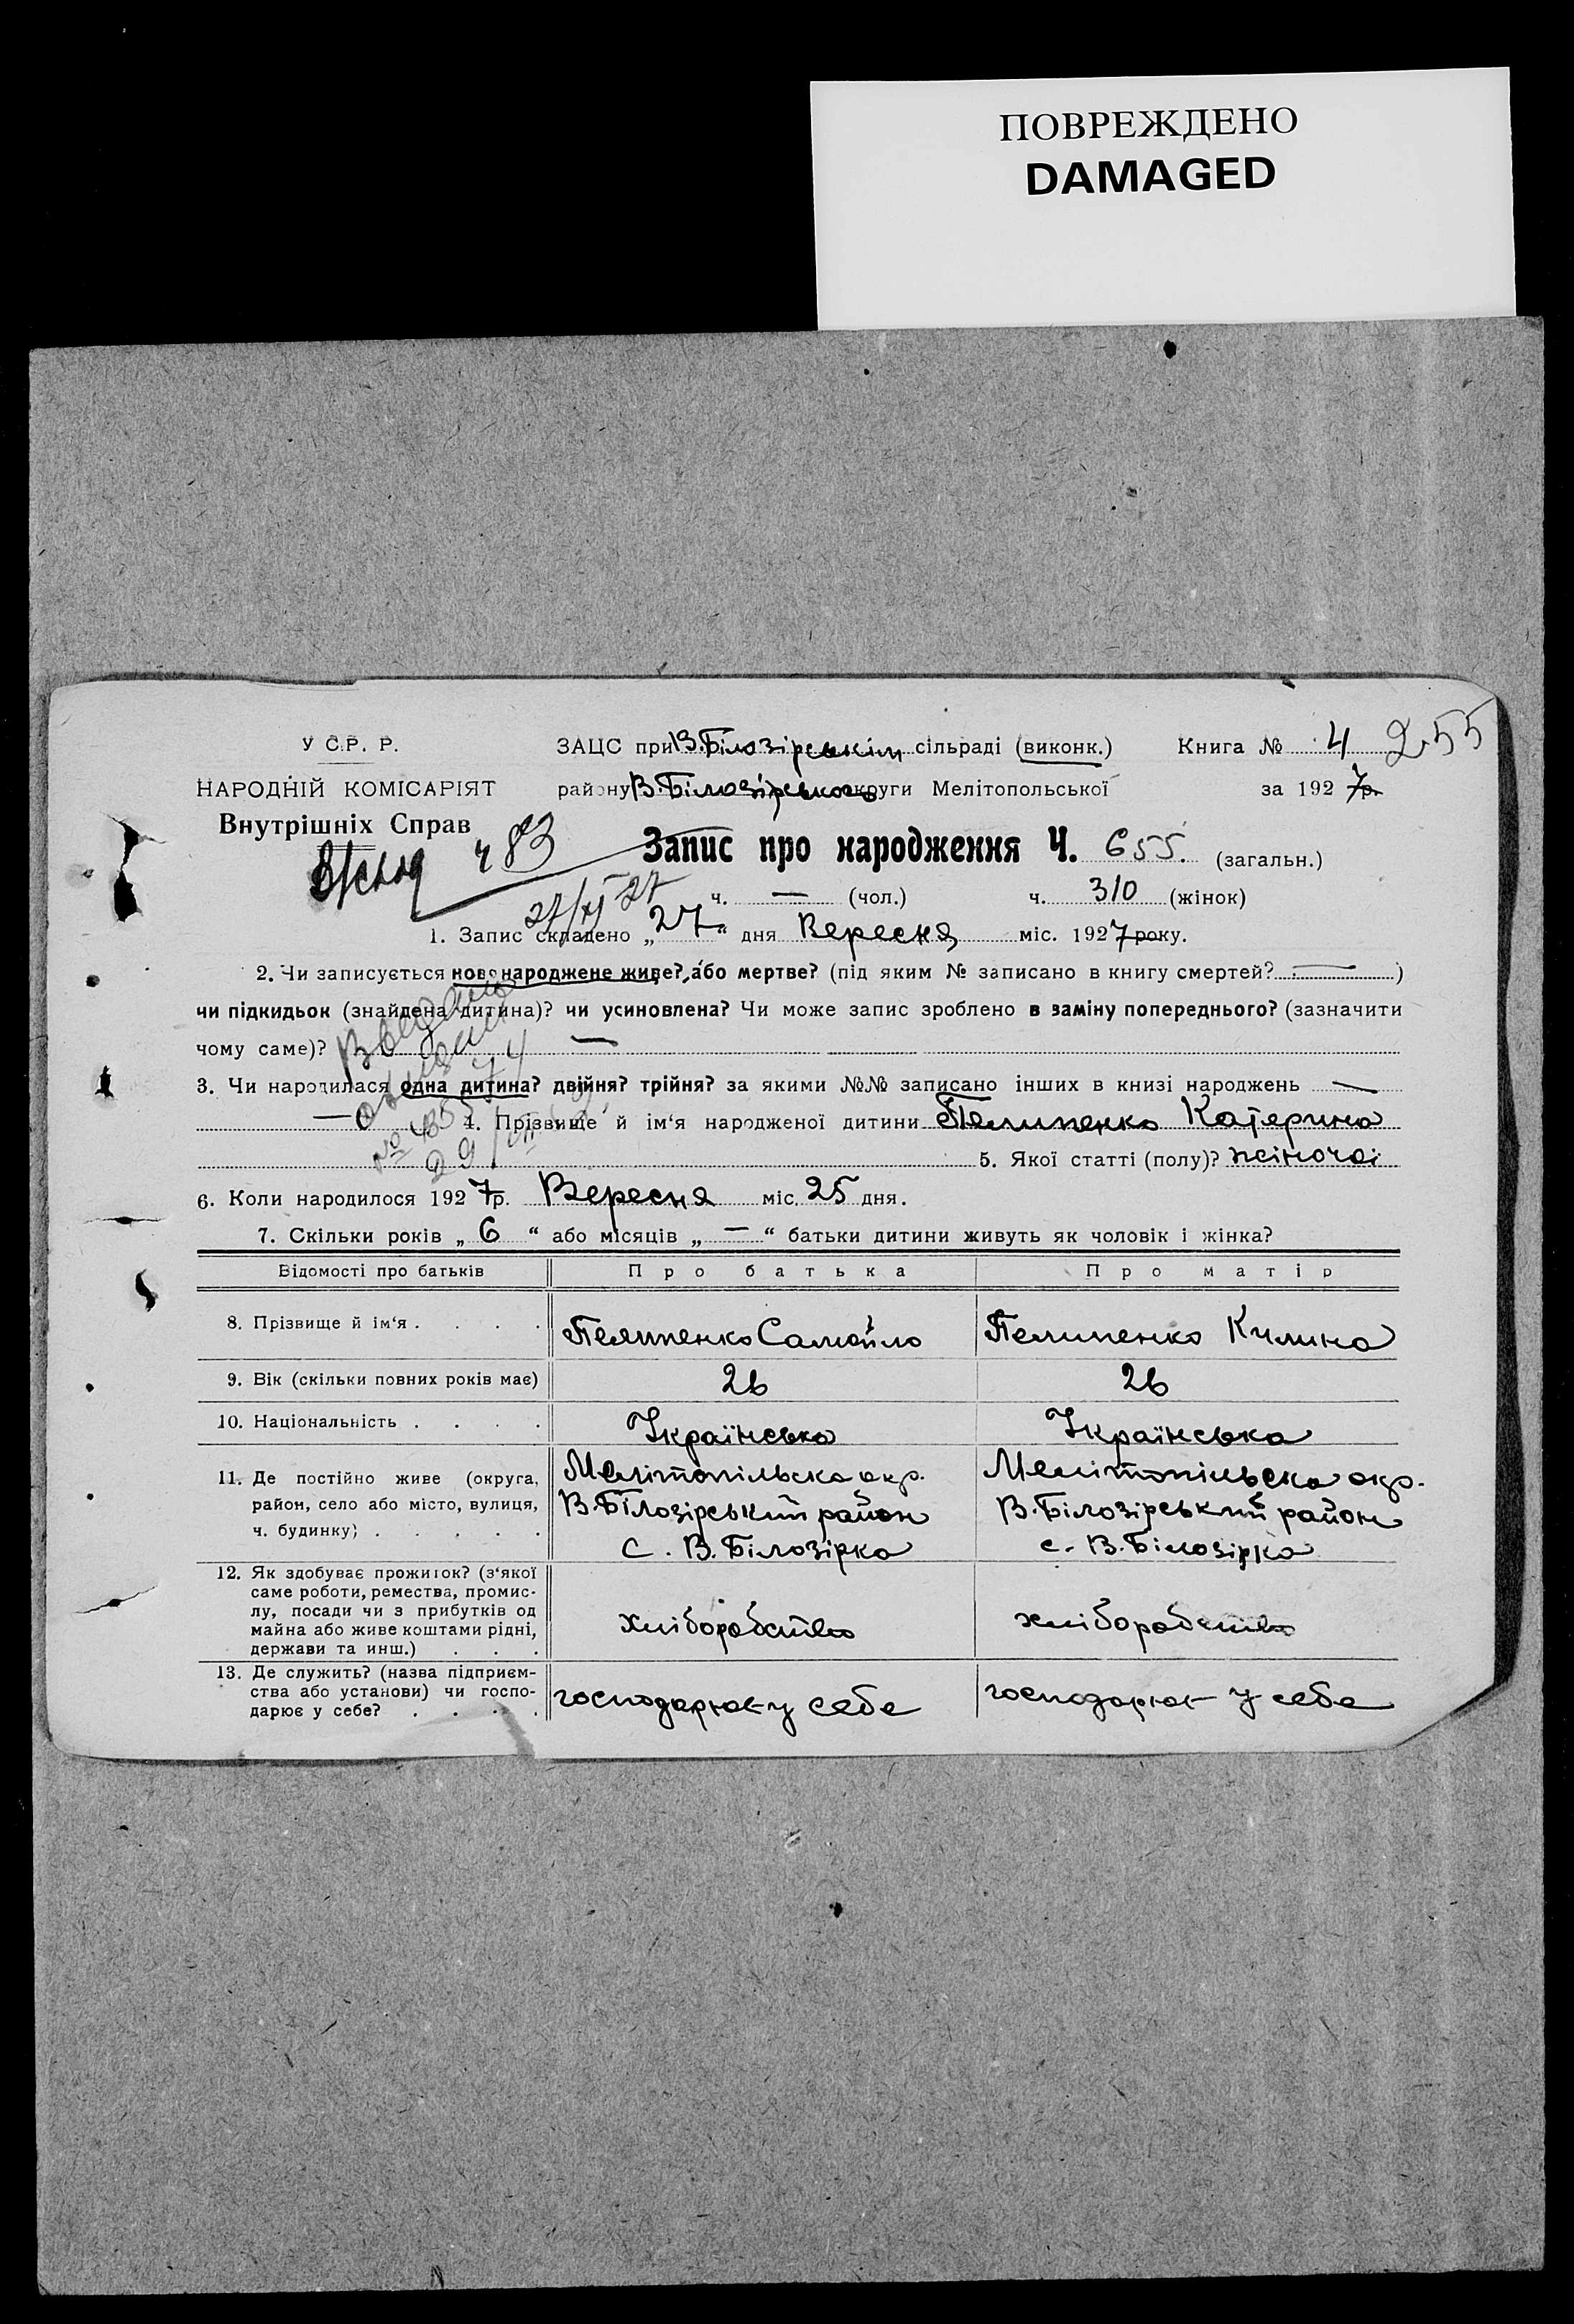 ПОВРЕЖДЕНО
DAMAGED
У С.Р. Р.
НАРОДНІЙ КОМІСАРІЯТ
Внутрішніх Справ
ЗАЦС при В.Білозірськім сільраді (виконк.) Книга № 4 255
району В.Білозірського округи Мелітопольської за 1927 р.
483
Запис про народження Ч. 655. (загальн.)
27/XI 27
ч. — (чол.) ч. 310 (жінок)
1. Запис складено „27“ дня Вересня міс. 1927 року.
2. Чи записується новонароджене живе? або мертве? (під яким № записано в книгу смертей? — )
чи підкидьок (знайдена дитина)? чи усиновлена? Чи може запис зроблено в заміну попереднього? (зазначити
чому саме)? —
3. Чи народилася одна дитина? двійня? трійня? за якими №№ записано інших в книзі народжень —
— 4. Прізвище й ім‘я народженої дитини Пелипенко Катерина
5. Якої статті (полу)? жіночої
6. Коли народилося 1927 р. Вересня міс. 25 дня.
7. Скільки років „ 6 “ або місяців „ — “ батьки дитини живуть як чоловік і жінка?
Відомості про батьків Про батька Про матір
8. Прізвище й ім‘я . . . . Пелипенко Самойло Пелипенко Килина
9. Вік (скільки повних років має) 26 26
10. Національність . . . . Українська Українська
11. Де постійно живе (округа,
район, село або місто, вулиця,
ч. будинку) . . . . .
Мелітопільська окр.
В.Білозірський район
с. В.Білозірка
Мелітопільська окр.
В.Білозірський район
с. В.Білозірка
12. Як здобуває прожиток? (з‘якої
саме роботи, ремества, промис-
лу, посади чи з прибутків од
майна або живе коштами рідні,
держави та инш.) . . .
хліборобство хліборобство
13. Де служить? (назва підприєм-
ства або установи) чи госпо-
дарює у себе? . . . .
господарює у себе господарює у себе